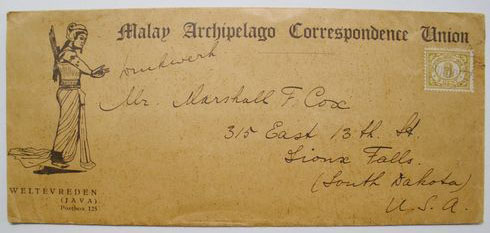 Malay Archipelago Correspondence Union
drukwerk
Mr. Marshall F. Cox
315 East 13th. St.
Sioux Falls.
(South Dakota)
U.S.A.
WELTEVREDEN
(JAVA)
Postbox 125